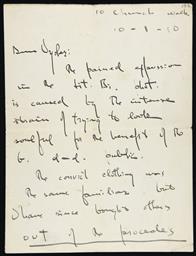 10 Church Walk
10-8-10
The pained expression
in the Lit. is
caused by the intense
strain of trying to look
soulful for the benefit of the
public.
The convict clothing was
the same familiar but
I have since bought others
out of the proceeds